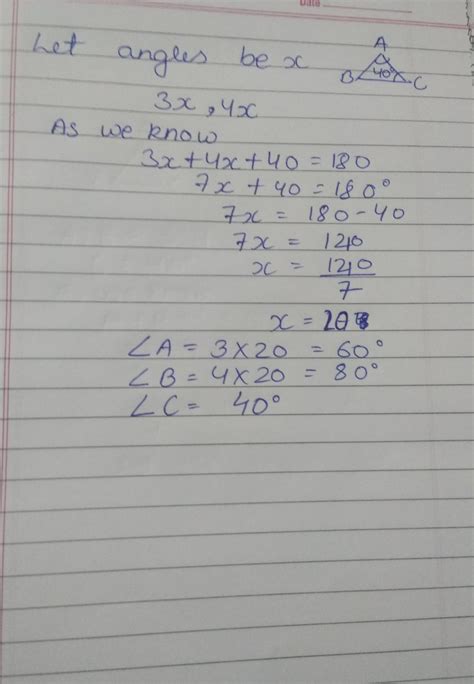 Date
Let angles be x
A
40°
B C
3x, 4x
As we know
3x + 4x + 40 = 180
7x + 40 = 180°
7x = 180 - 40
7x = 140
x = 140
7
x = 20
∠A = 3 × 20 = 60°
∠B = 4 × 20 = 80°
∠C = 40°